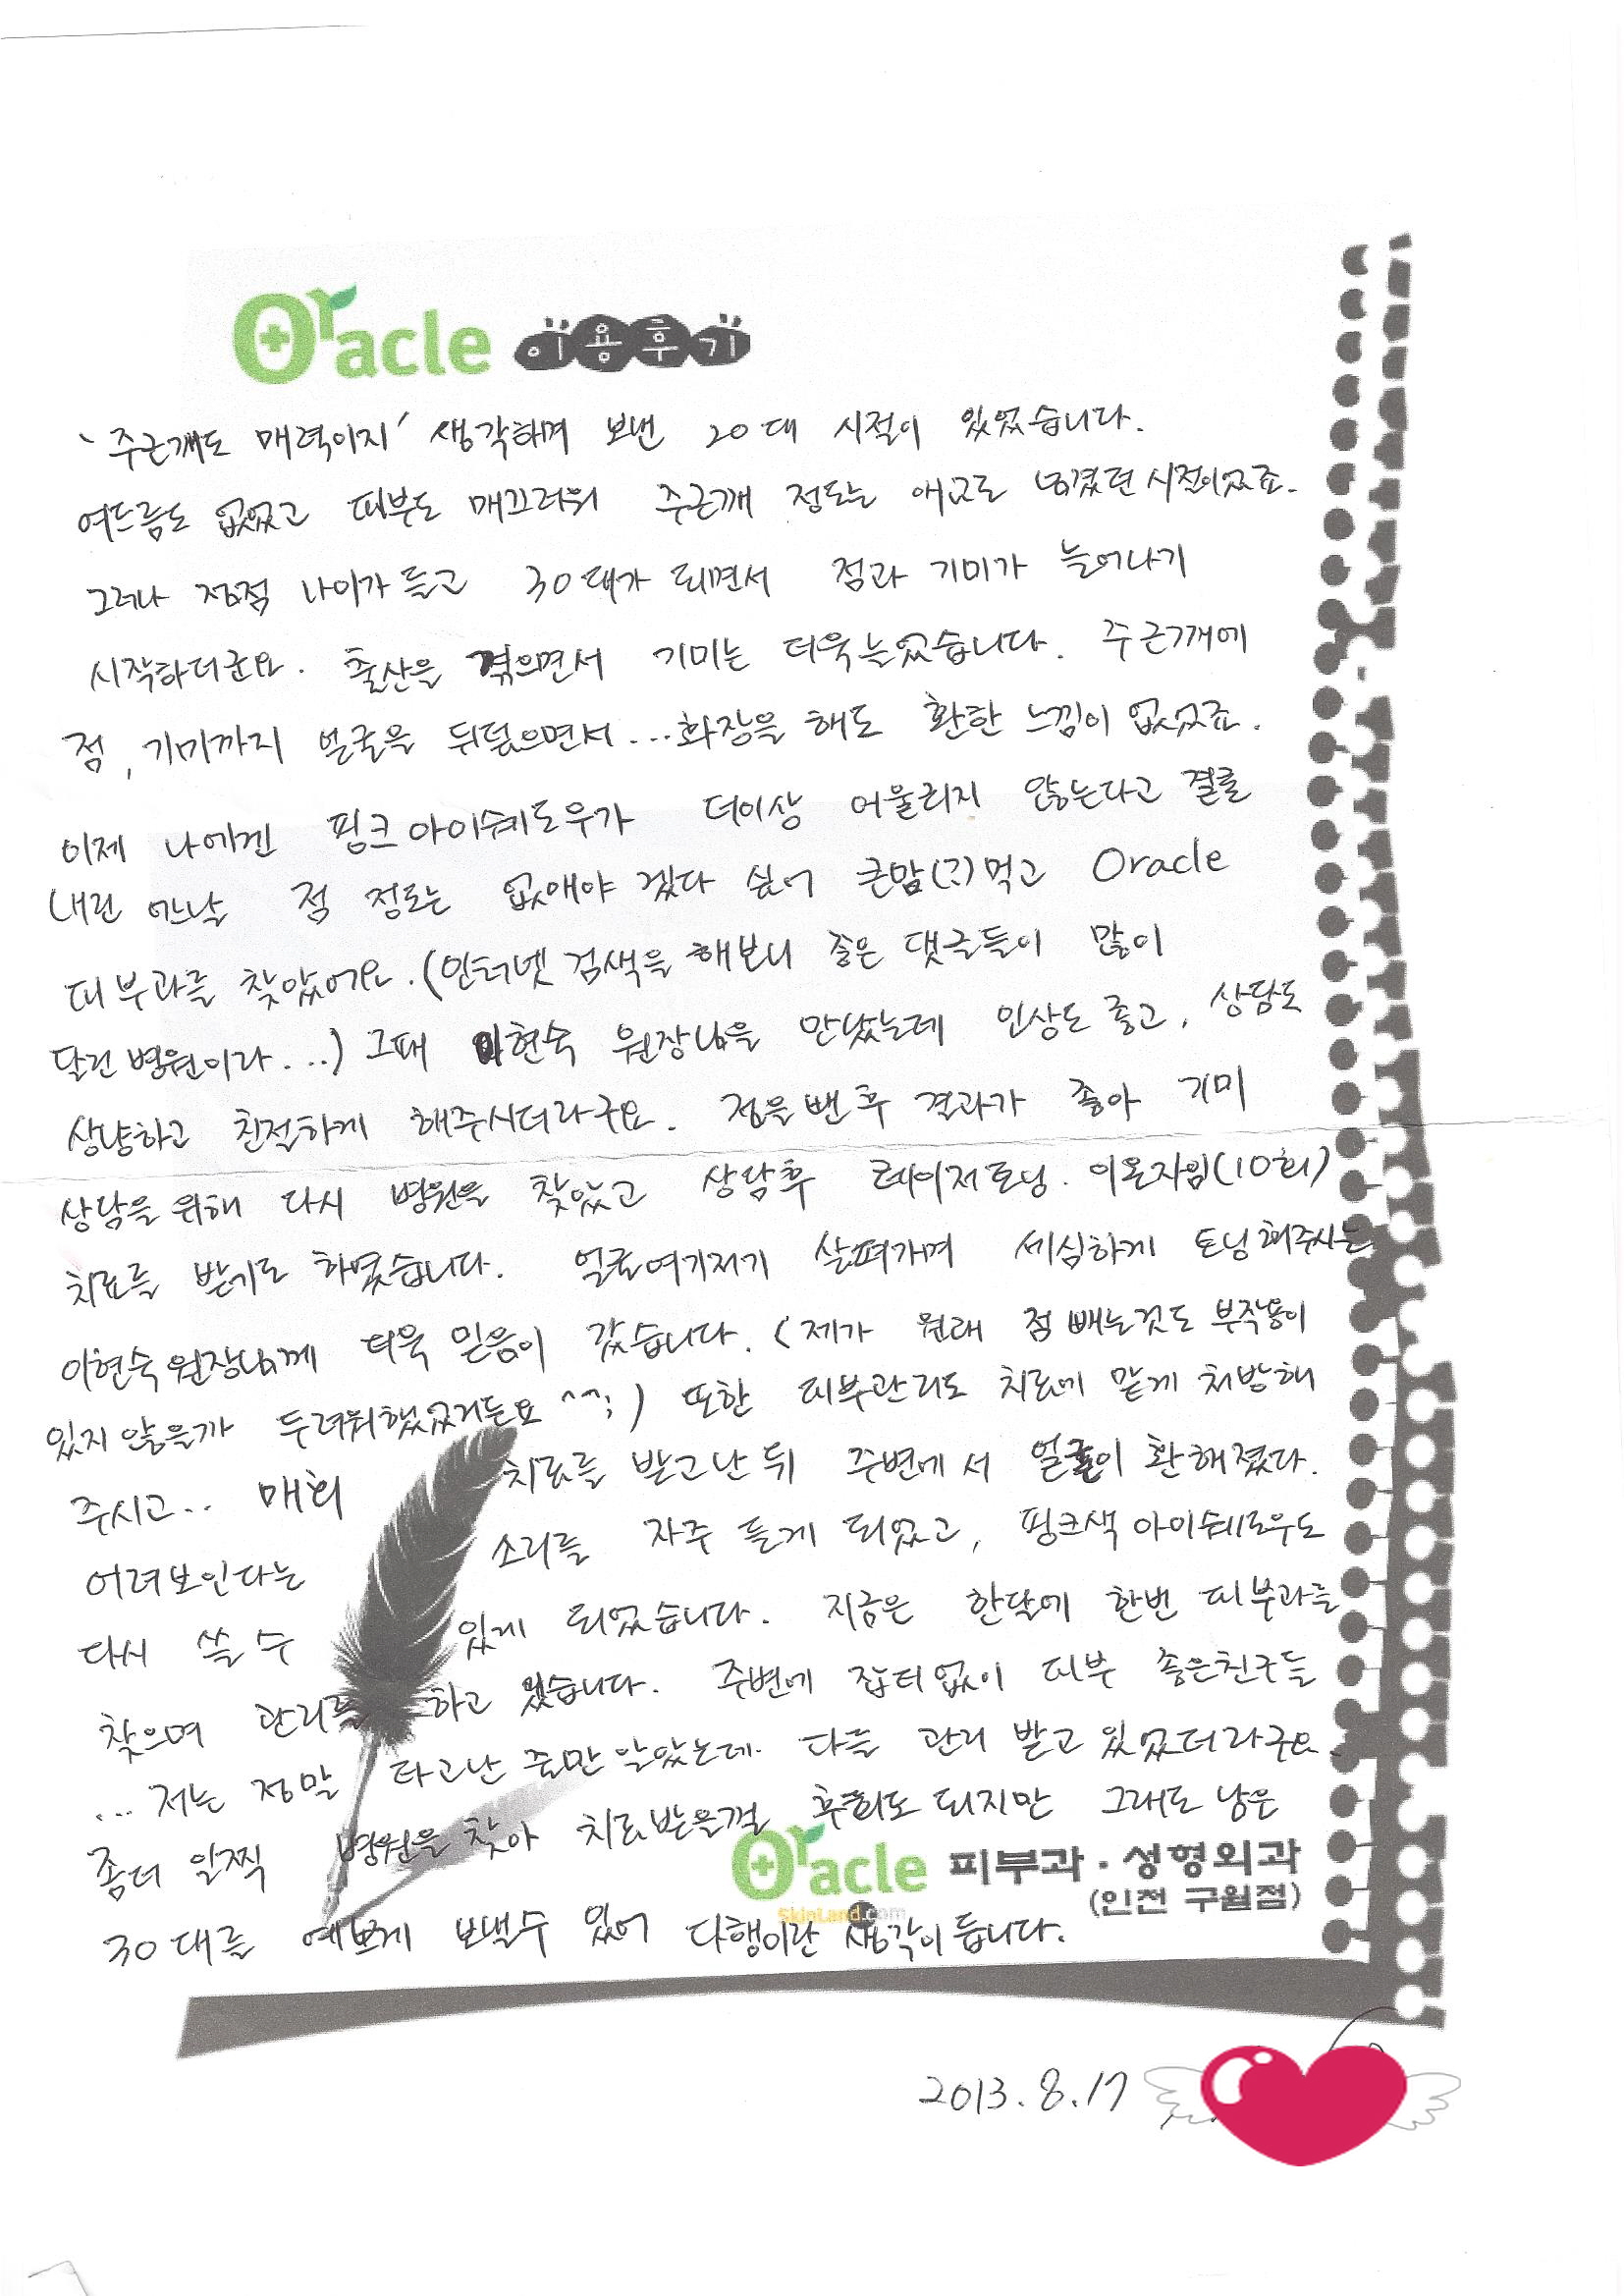 Oracle 이용후기
'주근깨도 매력이지' 생각하며 보낸 20대 시절이 있었습니다.
여드름도 없었고 피부도 매끄러워 주근깨 정도는 애교로 넘겼던 시절이었죠.
그러나 점점 나이가 들고 30대가 되면서 점과 기미가 늘어나기
시작하더군요. 출산을 겪으면서 기미는 더욱 늘었습니다. 주근깨에
점, 기미까지 얼굴을 뒤덮으면서...화장을 해도 환한 느낌이 없었죠.
이제 나에겐 핑크 아이쉐도우가 더이상 어울리지 않는다고 결론
내린 어느날 점 정도는 없애야 겠다 싶어 큰맘(?)먹고 Oracle
피부과를 찾았어요.(인터넷 검색을 해보니 좋은 댓글들이 많이
달린 병원이라...) 그때 이현숙 원장님을 만났는데 인상도 좋고, 상담도
상냥하고 친절하게 해주시더라구요. 점을 뺀 후 결과가 좋아 기미
상담을 위해 다시 병원을 찾았고 상담후 레이저토닝. 이온자임(10회)
치료를 받기로 하였습니다. 얼굴여기저기 살펴가며 세심하게 토닝해주시는
이현숙 원장님께 더욱 믿음이 갔습니다. (제가 원래 점 빼는것도 부작용이
있지 않을까 두려워했었거든요 ^^;) 또한 피부관리도 치료에 맞게 처방해
주시고.. 매회 치료를 받고난 뒤 주변에서 얼굴이 환해졌다.
어려보인다는 소리를 자주 듣게 되었고, 핑크색 아이쉐도우도
다시 쓸 수 있게 되었습니다. 지금은 한달에 한번 피부과를
찾으며 관리를 하고 있습니다. 주변에 잡티없이 피부 좋은친구들
... 저는 정말 타고난 줄만 알았는데. 다들 관리 받고 있었더라구요.
좀더 일찍 병원을 찾아 치료받을껄 후회도 되지만 그래도 남은
Oracle 피부과·성형외과
SkinLand.com (인천 구월점)
30대를 예쁘게 보낼수 있어 다행이란 생각이 듭니다.
2013.8.17